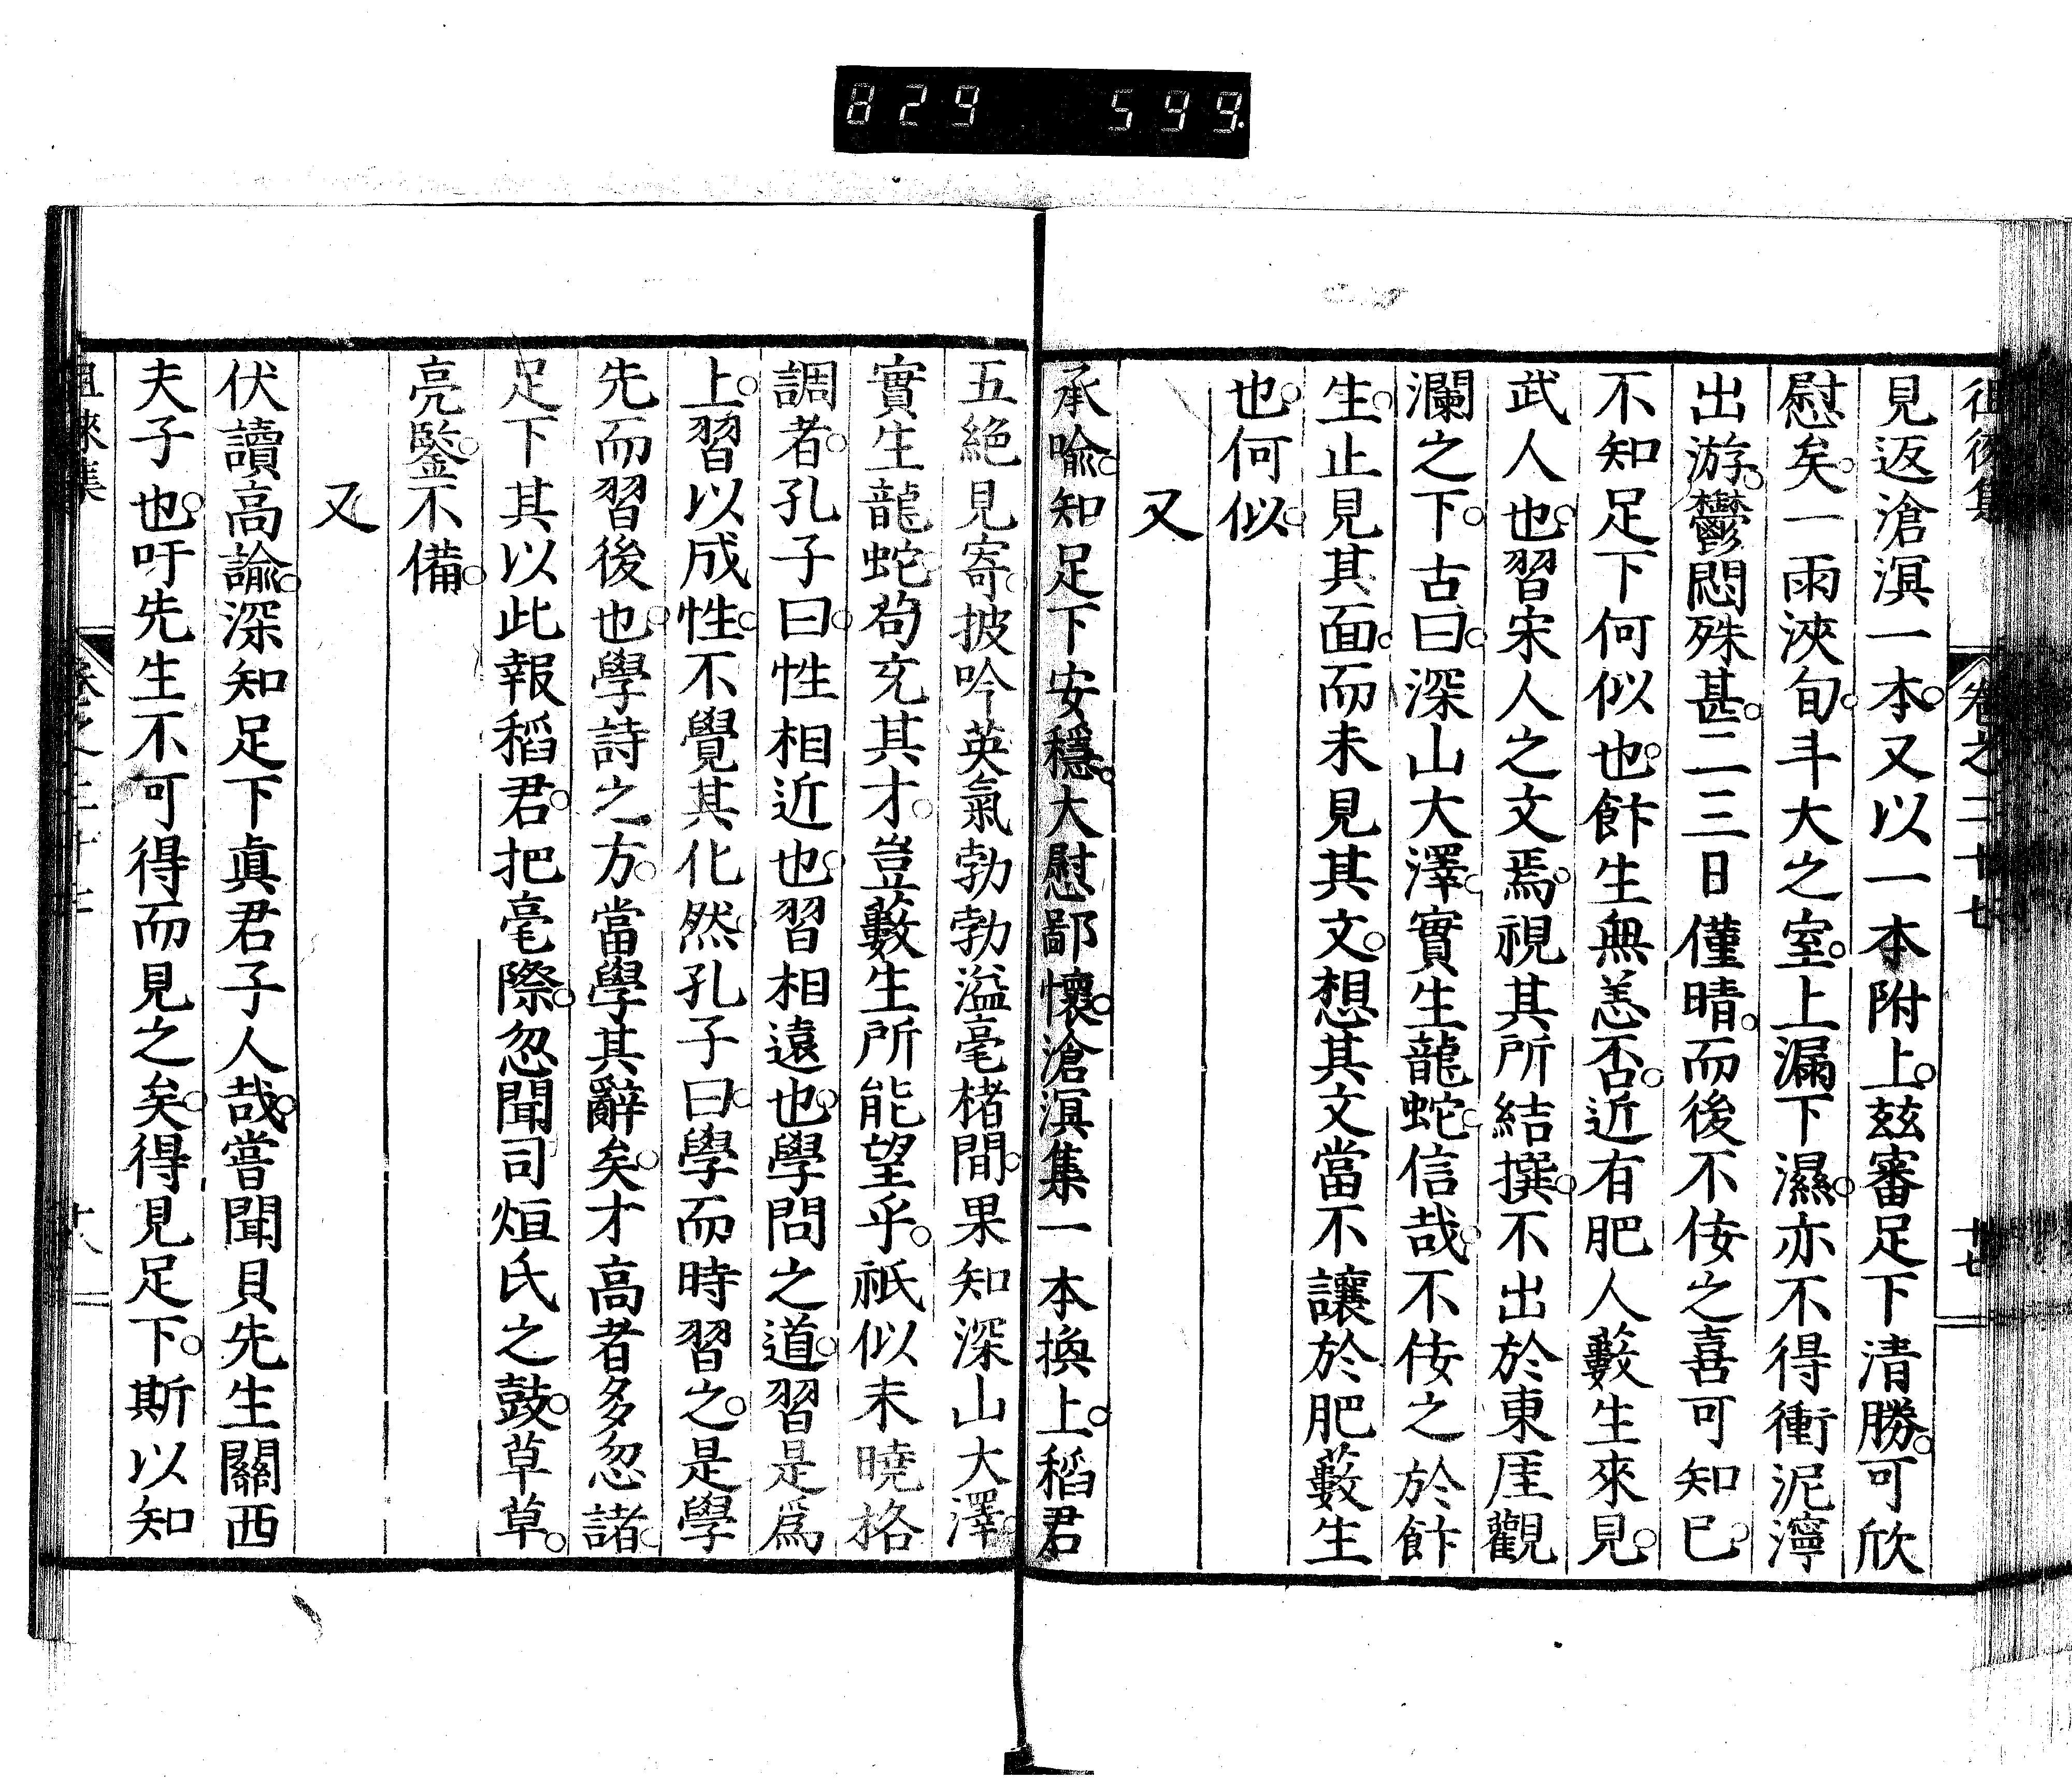 829 599.
徂徠集 卷之二十七 十七
見返滄溟一本。又以一本附上。玆審足下清勝。可欣
慰矣。一雨浹旬。斗大之室。上漏下濕。亦不得衝泥濘
出游。鬱悶殊甚。二三日僅晴。而後不佞之喜可知已。
不知足下何似也。飰生無恙否。近有肥人藪生來見。
武人也。習宋人之文焉。視其所結撰。不出於東厓觀
瀾之下。古曰。深山大澤。實生龍蛇。信哉。不佞之於飰
生。止見其面。而未見其文。想其文當不讓於肥藪生
也。何似。
又
承喩。知足下安穩。大慰鄙懷。滄溟集一本換上。稻君
五絕見寄。披吟英氣勃勃溢毫楮間。果知深山大澤。
實生龍蛇。茍充其才。豈藪生所能望乎。祇似未曉格
調者。孔子曰。性相近也。習相遠也。學問之道。習是爲
上。習以成性。不覺其化然。孔子曰。學而時習之。是學
先而習後也。學詩之方。當學其辭矣。才高者多忽諸。
足下其以此報稻君。把毫際。忽聞司烜氏之鼓。草草。
亮鑒。不備。
又
伏讀高諭。深知足下眞君子人哉。嘗聞貝先生關西
夫子也。吁先生不可得而見之矣。得見足下。斯以知
徠集 卷之二十七 十八